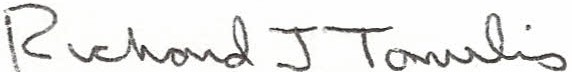 Richard J Tomulis